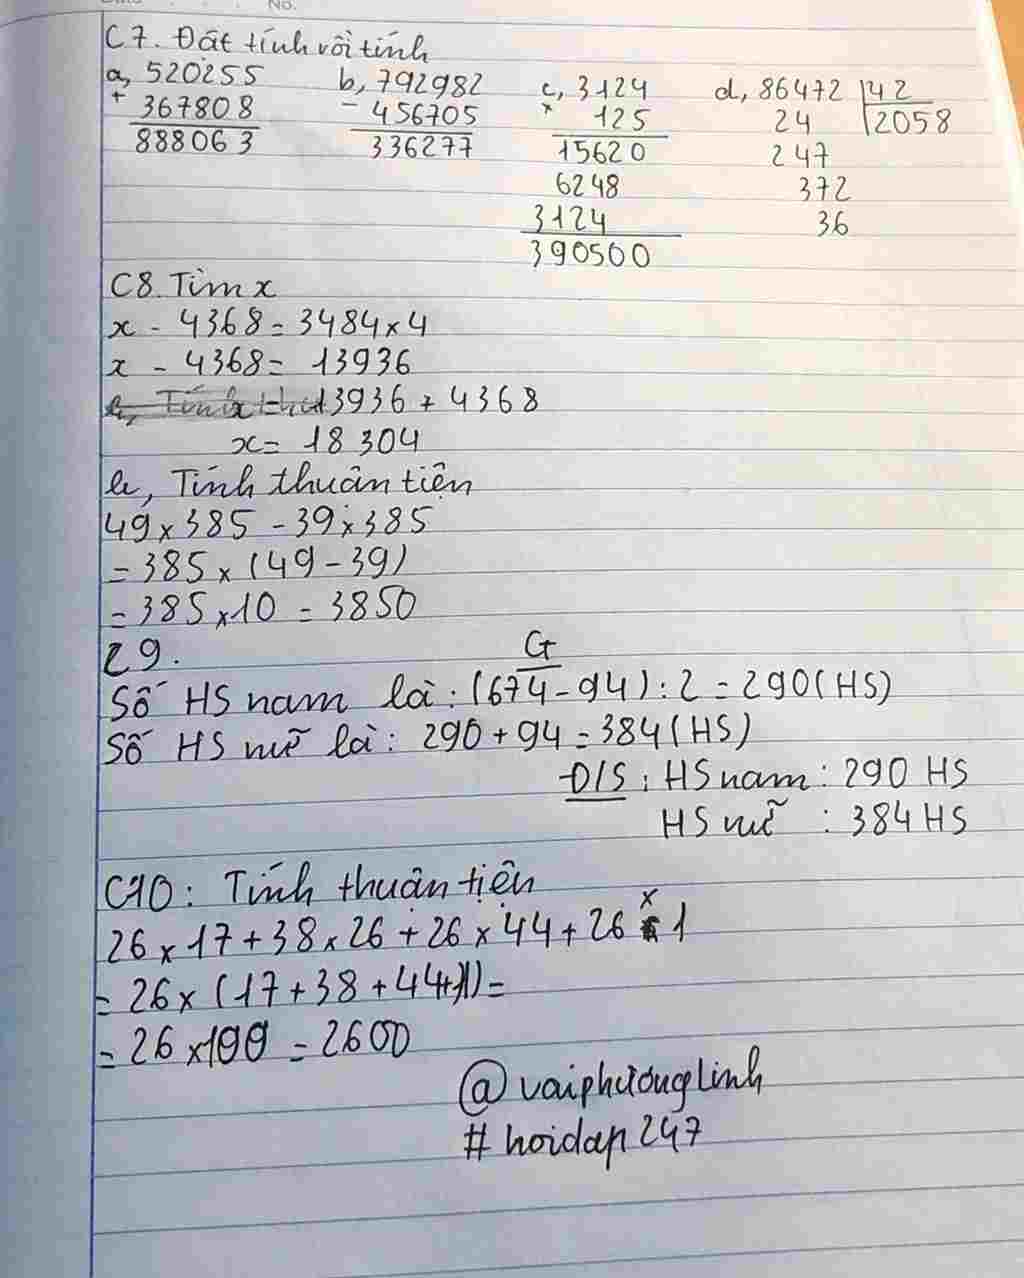 No.
C7. Đặt tính rồi tính
a, 520255 b, 792982 c, 3124 d, 86472 42
+ 367808 - 456705 × 125 24 2058
888063 336277 15620 247
6248 372
3124 36
390500
C8. Tìm x
x - 4368 = 3484 × 4
x - 4368 = 13936
x = 13936 + 4368
x = 18304
b, Tính thuân tiện
49 × 385 - 39 × 385
= 385 × (49 - 39)
= 385 × 10 = 3850
C9. G
Số HS nam là : (674 - 94) : 2 = 290 (HS)
Số HS nữ là : 290 + 94 = 384 (HS)
Đ/S : HS nam : 290 HS
HS nữ : 384 HS
C10 : Tính thuân tiện
26 × 17 + 38 × 26 + 26 × 44 + 26 × 1
= 26 × (17 + 38 + 44 + 1) =
= 26 × 100 = 2600
@vaiphuonglinh
# hoidap247